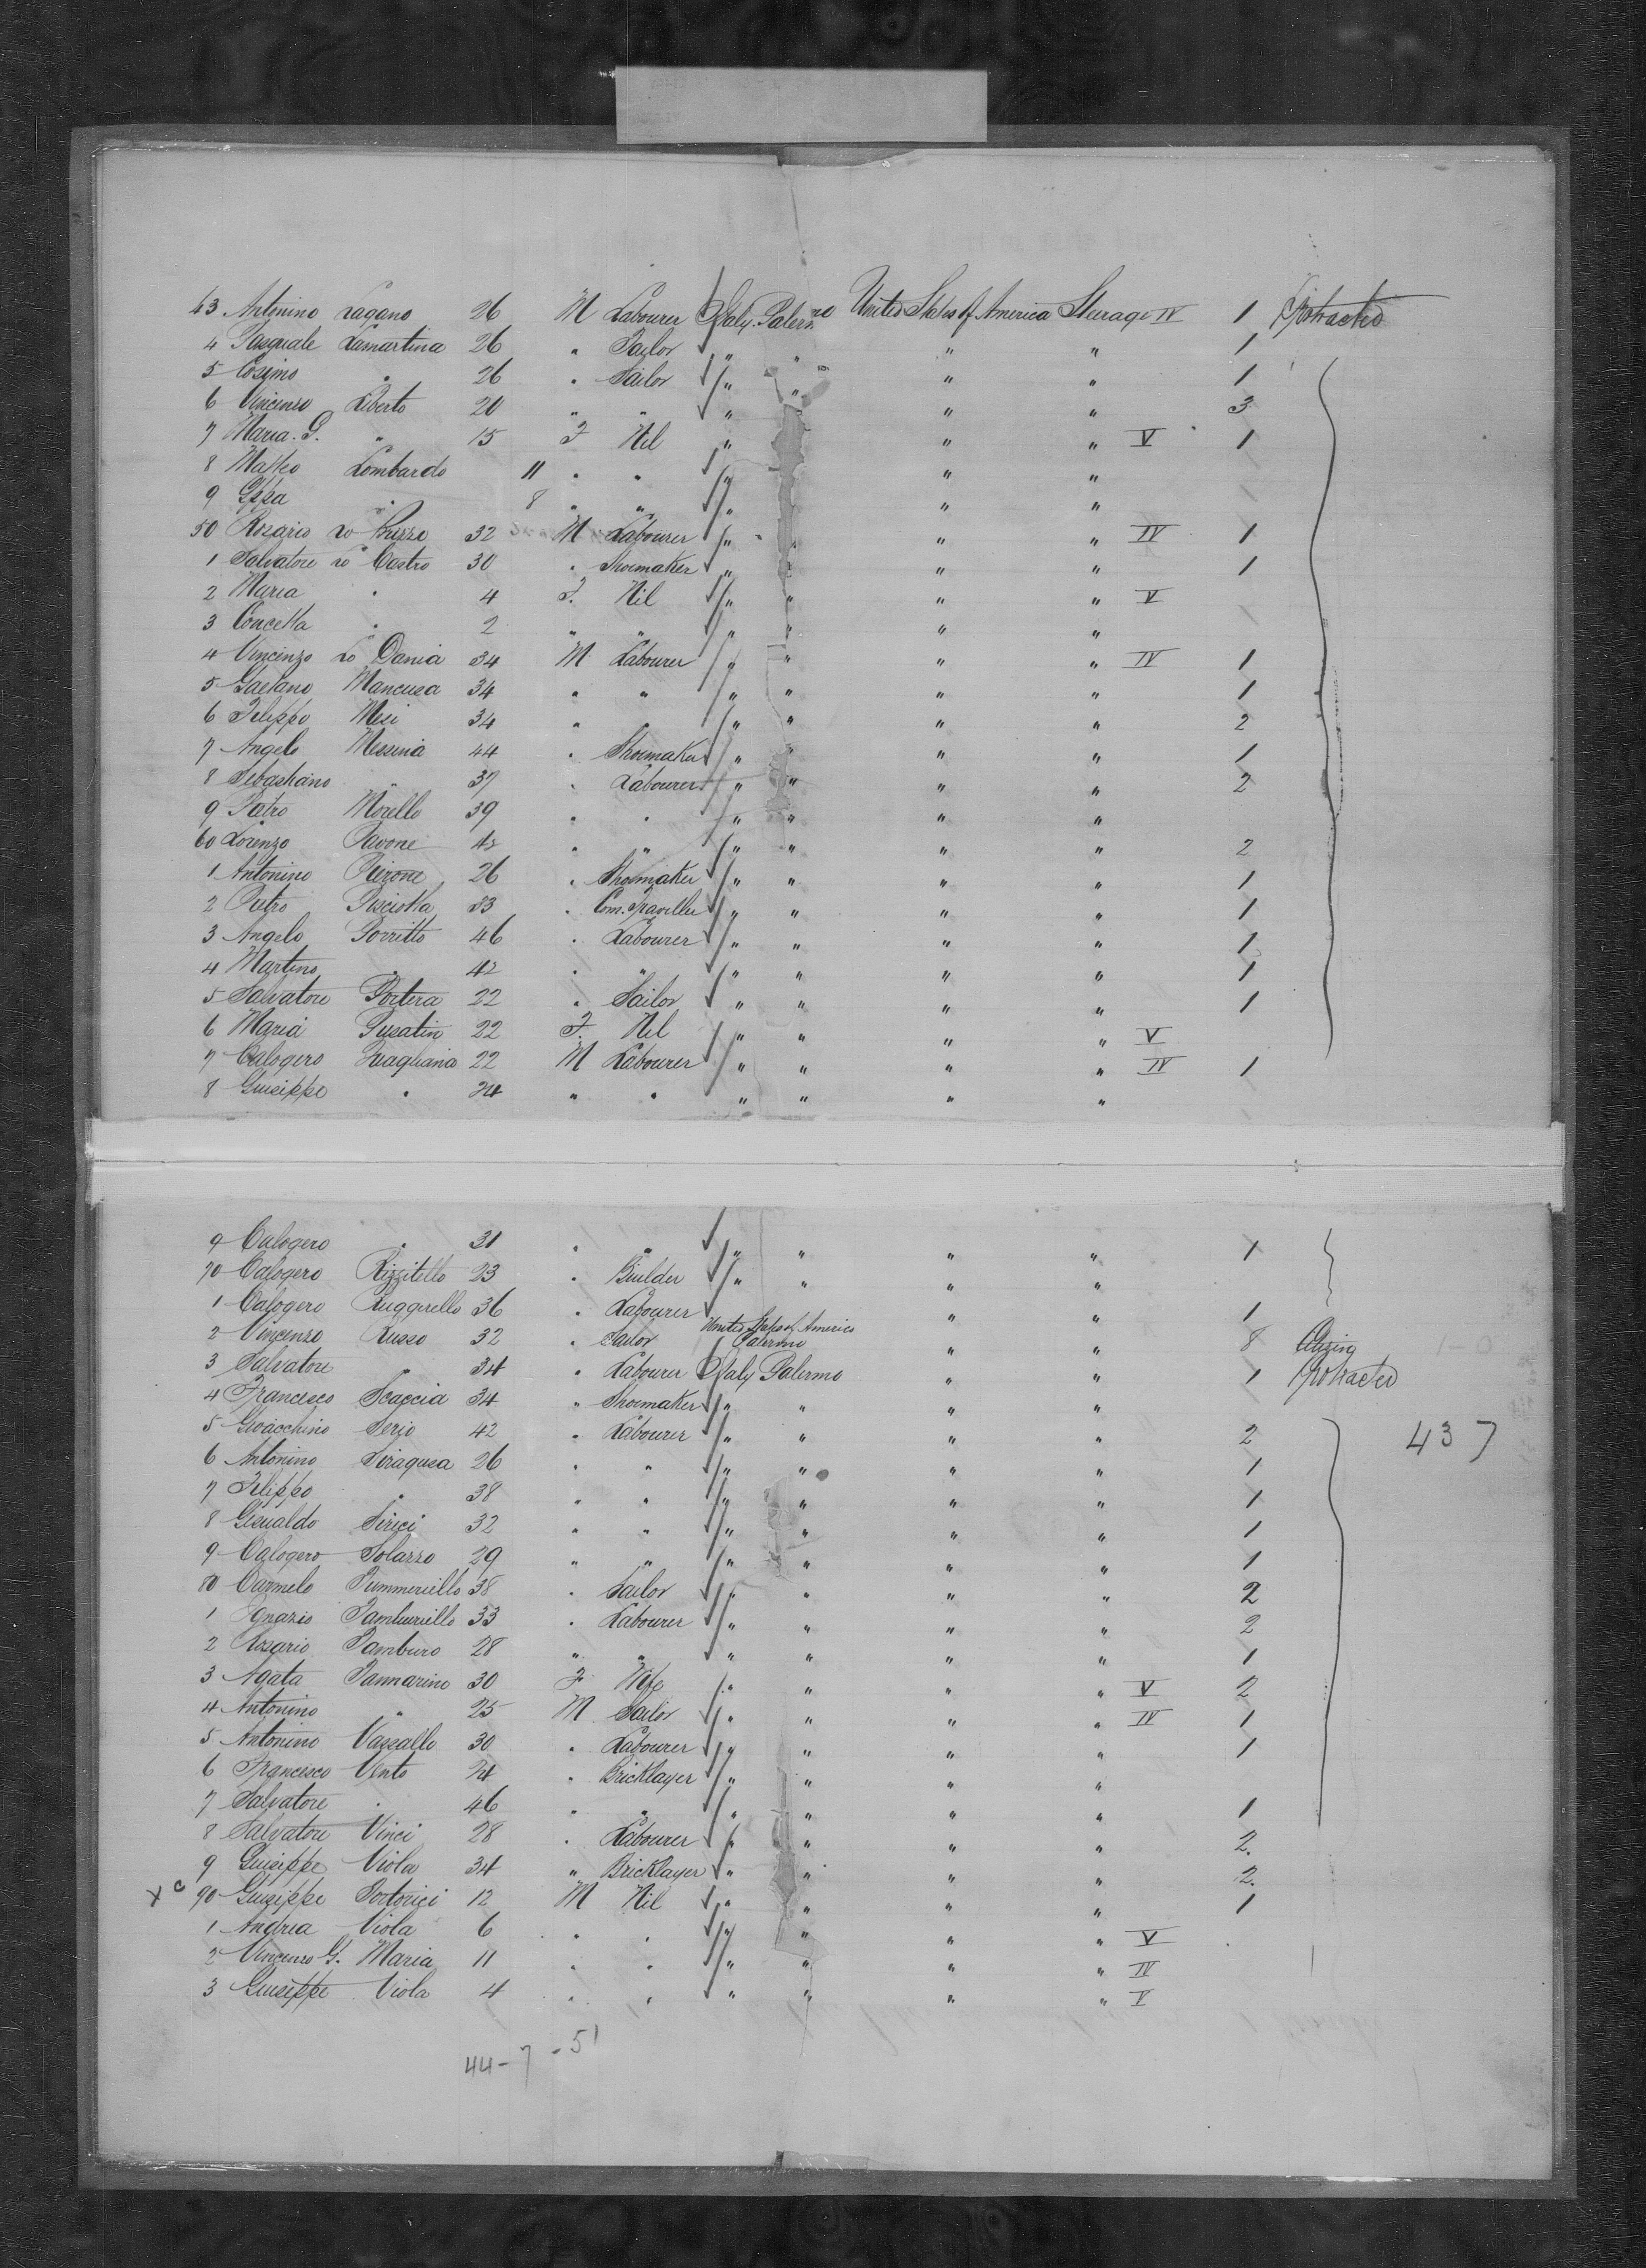 43 Antonino Lagano 26 M Labourer Italy Palermo United States of America Steerage IV 1 Protracted
4 Pasquale Lamartina 26 " Tailor " " " " 1
5 Cosimo " 26 " Sailor " " " " 1
6 Vincenzo Liberto 20 " " " " " 3
7 Maria. G. " 15 F Nil " " " V 1
8 Matteo Lombardo 11 " " " " "
9 Gppa " 8 " " " " "
50 Rosario Lo Buzzo 32 M Labourer " " " " IV 1
1 Salvatore Lo Castro 30 " Shoemaker " " " " 1
2 Maria " 4 F. Nil " " " " V
3 Concetta " 2 " " " " " "
4 Vincenzo Lo Dania 34 M Labourer " " " " IV 1
5 Gaetano Mancusa 34 " " " " " " 1
6 Filippo Mesi 34 " " " " " " 2
7 Angelo Messina 44 " Shoemaker " " " " 1
8 Sebastiano " 37 " Labourer " " " " 2
9 Pietro Morello 39 " " " " " "
60 Lorenzo Pavone 42 " " " " " " 2
1 Antonino Peirone 26 " Shoemaker " " " " 1
2 Pietro Pisciotta 33 " Com. Traveller " " " " 1
3 Angelo Porritto 46 " Labourer " " " " 1
4 Martino " 42 " " " " " " 1
5 Salvatore Portera 22 " Sailor " " " " 1
6 Maria Pusatin 22 F. Nil " " " " V
7 Calogero Quagliana 22 M Labourer " " " " IV 1
8 Giuseppe " 24 " " " " " "
9 Calogero " 31 " " " " " " 1
70 Calogero Rizzitello 23 " Builder " " " "
1 Calogero Ruggirello 36 " Labourer " " 1
2 Vincenzo Russo 32 " Sailor United States of America Palermo " " 8 Citizen
3 Salvatore " 34 " Labourer Italy Palermo " " 1 Protracted
4 Francesco Scaccia 34 " Shoemaker " " " "
5 Gioacchino Serio 42 " Labourer " " " " 2 437
6 Antonino Siragusa 26 " " " " " " 1
7 Filippo " 38 " " " " " " 1
8 Gesualdo Sirici 32 " " " " " " 1
9 Calogero Solazzo 29 " " " " " " 1
80 Carmelo Tummeriello 38 " Sailor " " " " 2
1 Ignazio Tamburiello 33 " Labourer " " " " 2
2 Rosario Tamburo 28 " " " " " " 1
3 Agata Tannarino 30 F. Wife " " " " V 2
4 Antonino " 25 M Sailor " " " " IV 1
5 Antonino Vassallo 30 " Labourer " " " " 1
6 Francesco Vento 24 " Bricklayer " " " "
7 Salvatore " 46 " " " " " " 1
8 Salvatore Vinci 28 " Labourer " " " " 2.
9 Giuseppe Viola 34 " Bricklayer " " " " 2.
x c 90 Giuseppe Sortorici 12 M Nil " " " " 1
1 Andrea Viola 6 " " " " " " V
2 Vincenzo G. Maria 11 " " " " " " IV
3 Giuseppe Viola 4 " " " " " " V
44-7-51